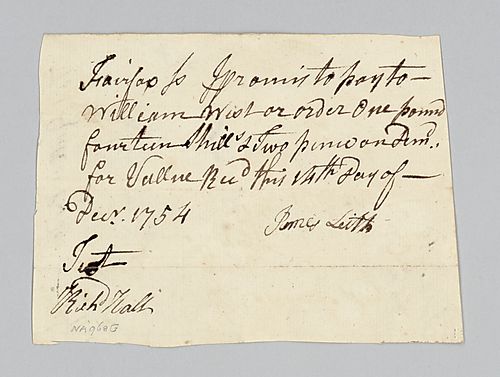 Fairfax Ss I promis to pay to
William West or order One pound
fourteen Shills & Two pence on Demd.,
for Vallue Recd this 14th Day of
Decr. 1754
James Leith
Test
Richd Hall
NA960G